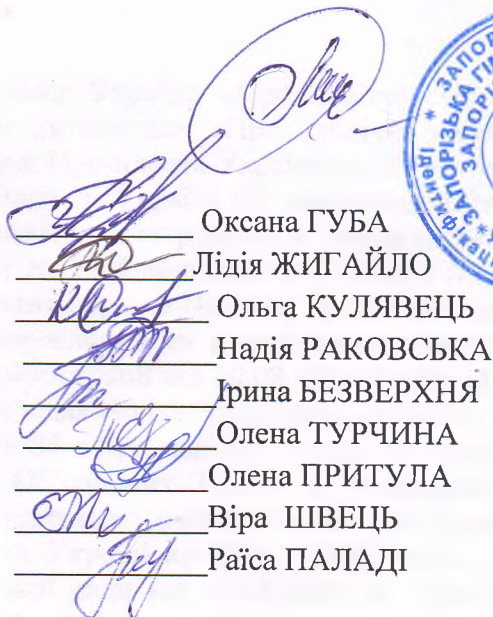 Оксана ГУБА
Лідія ЖИГАЙЛО
Ольга КУЛЯВЕЦЬ
Надія РАКОВСЬКА
Ірина БЕЗВЕРХНЯ
Олена ТУРЧИНА
Олена ПРИТУЛА
Віра ШВЕЦЬ
Раїса ПАЛАДІ
ЗАПОРІЗЬКА